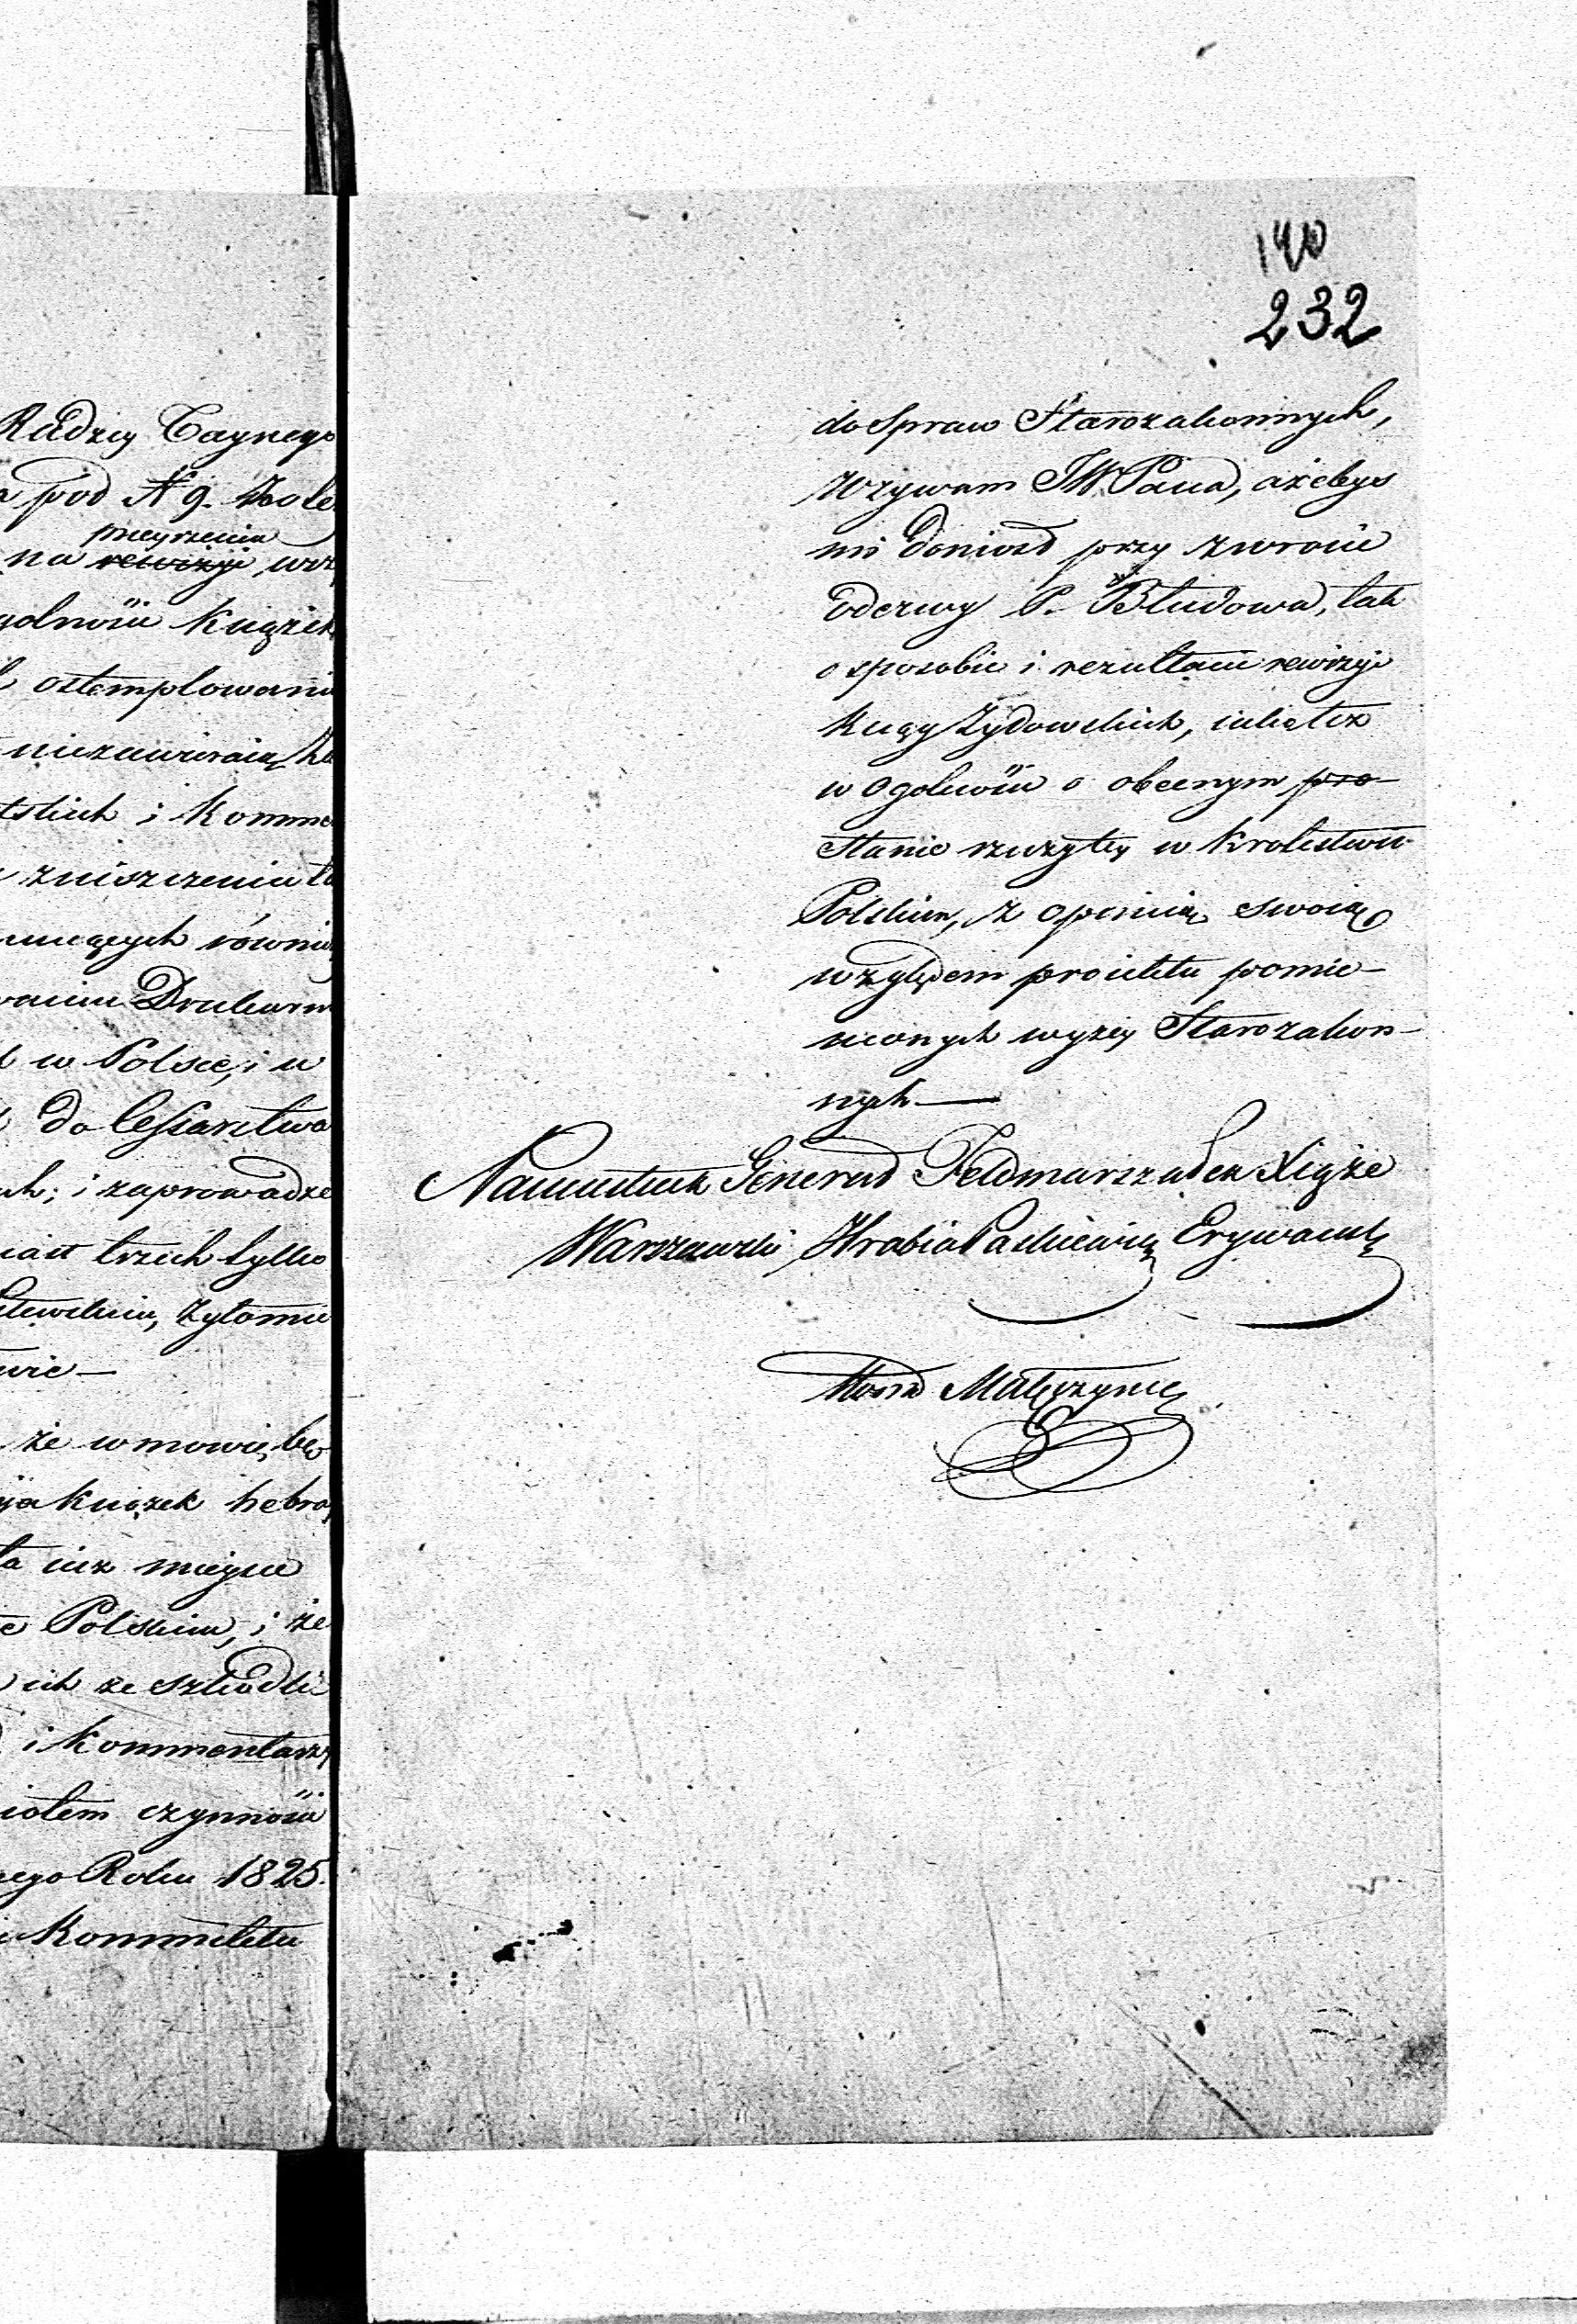 Radzcy Taynego
pod N 9. Kole
przeyrzenia
na rewizyi wsz
gólności Książek
ostemplowani
niezawieraią
tskich i Komme
zniszczenia
równie
Drukarn
w Polsce, i w
do Cessarstwa
ich; i zaprowadze
iast trzech tylko
Żytomie
wie —
że w mowie bę
ya Książek hebray
ła iuż mieysce
e Polskim, i że
ich ze szkodli
i Kommentarzy
iotem czynności
nego Roku 1825.
i Kommitetu
140
232
do Spraw Starozakonnych,
wzywam JW Pana, ażebyś
mi doniosł przy zwrocie
odezwy P. Błudowa, tak
o sposobie i rezultacie rewizyi
ksiąg Żydowskich, iako też
w ogólności o obecnym pro-
stanie rzeczy tey w Królestwie
Polskim, z opiniią swoią
względem proiektu pomie-
nionych wyżey Starozakon-
nych —
Namiestnik Generał Feldmarszałek Xiąże
Warszawski Hrabia Paskiewicz Erywański